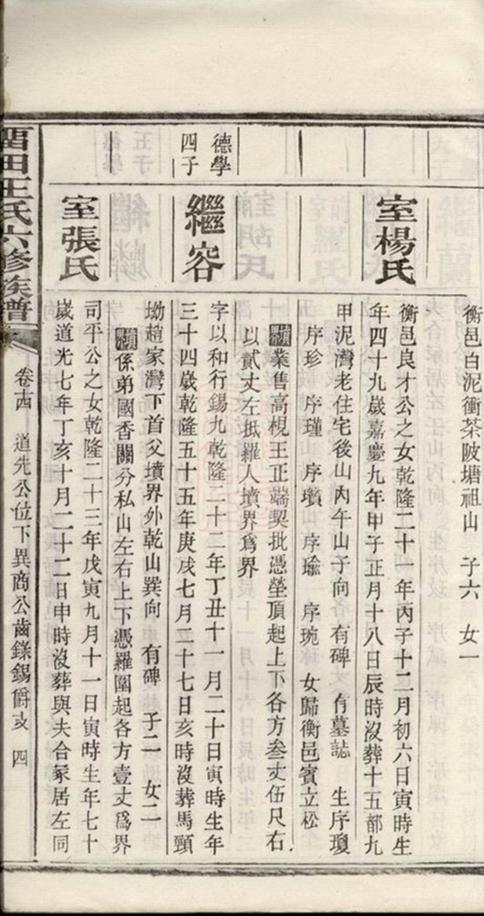 衡邑白泥衝茶陂塘祖山　子六　女一
室楊氏
衡邑良才公之女乾隆二十一年丙子十二月初六日寅時生
年四十九歲嘉慶九年甲子正月十八日辰時沒葬十五部九
甲泥灣老住宅後山內午山子向　有碑　有墓誌　生序瓊
序珍　序瑾　序瓚　序瑜　序琬　女歸衡邑賓立松
業售高梘王正端契批憑塋頂起上下各方叁丈伍尺右
以貳丈左抵羅人墳界爲界
德學
四子
繼容
字以和行錫九乾隆二十二年丁丑十一月二十日寅時生年
三十四歲乾隆五十五年庚戌七月二十七日亥時沒葬馬頸
坳趙家灣下首父墳界外乾山巽向　有碑　子二　女二
係弟國香關分私山左右上下憑羅圍起各方壹丈爲界
室張氏
司平公之女乾隆二十三年戊寅九月十一日寅時生年七十
歲道光七年丁亥十月二十二日申時沒葬與夫合冢居左同
田王氏六修族譜
卷十四　道先公位下異商公齒錄錫爵支　四